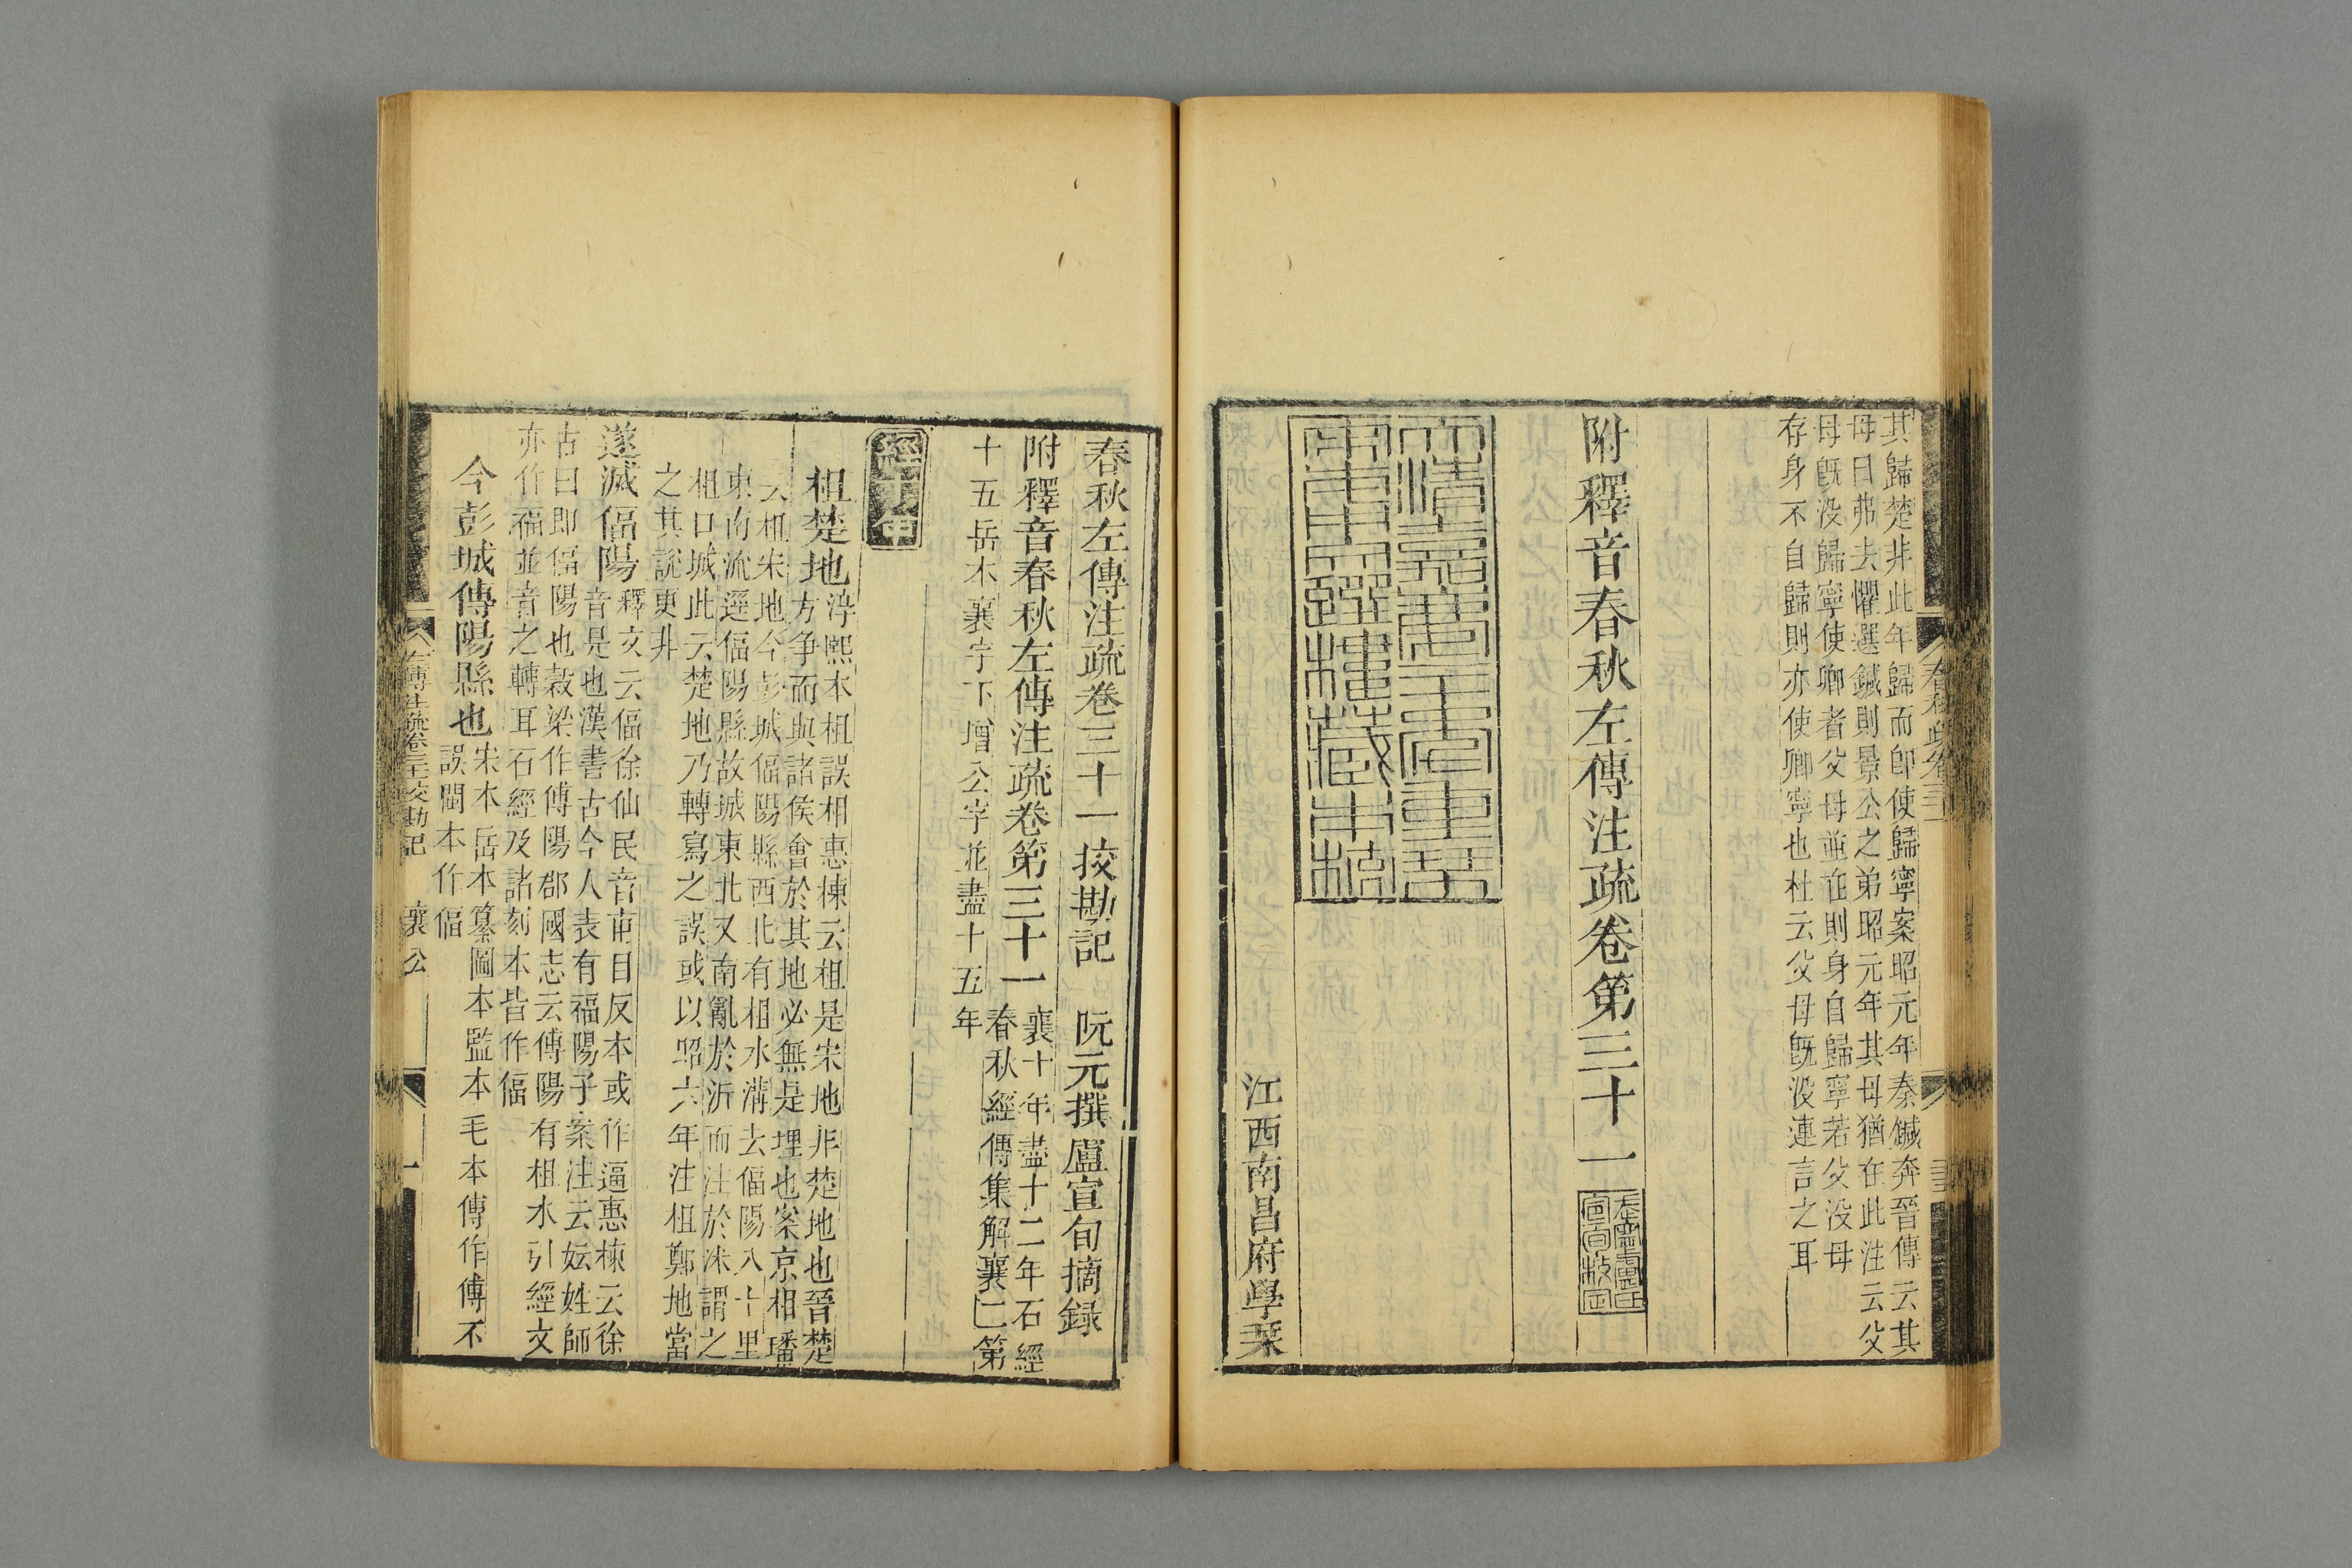 其歸楚非此年歸而即使歸寧案昭元年秦鍼奔晉傳云其
母曰弗去懼選鍼則景公之弟昭元年其母猶在此注云父
母既没歸寧使卿者父母並在則身自歸寧若父没母
存身不自歸則亦使卿寧也杜云父母既没連言之耳
附釋音春秋左傳注疏卷第三十一
江西南昌府學栞
春秋左傳注疏卷三十一挍勘記 阮元撰盧宣旬摘録
附釋音春秋左傳注疏卷第三十一
襄十年盡十二年石經
春秋經傳集解襄二第
十五岳本襄字下增公字並盡十五年
經十年
柤楚地
淳熙本柤誤相惠棟云柤是宋地非楚地也晉楚
方争而與諸侯會於其地必無是理也案京相璠
云柤宋地今彭城偪陽縣西北有柤水溝去偪陽八十里
東南流逕偪陽縣故城東北又南亂於沂而注於沭謂之
柤口城此云楚地乃轉寫之誤或以昭六年注柤鄭地當
之其說更非
遂滅偪陽
釋文云偪徐仙民音甫目反本或作逼惠棟云徐
音是也漢書古今人表有福陽子案注云妘姓師
古曰即偪陽也穀梁作傅陽郡國志云傅陽有柤水引經文
亦作福並音之轉耳石經及諸刻本皆作偪
今彭城傅陽縣也
宋本岳本纂圖本監本毛本傳作傅不
誤閩本作偪
左傳注疏卷三十一挍勘記 襄公 一